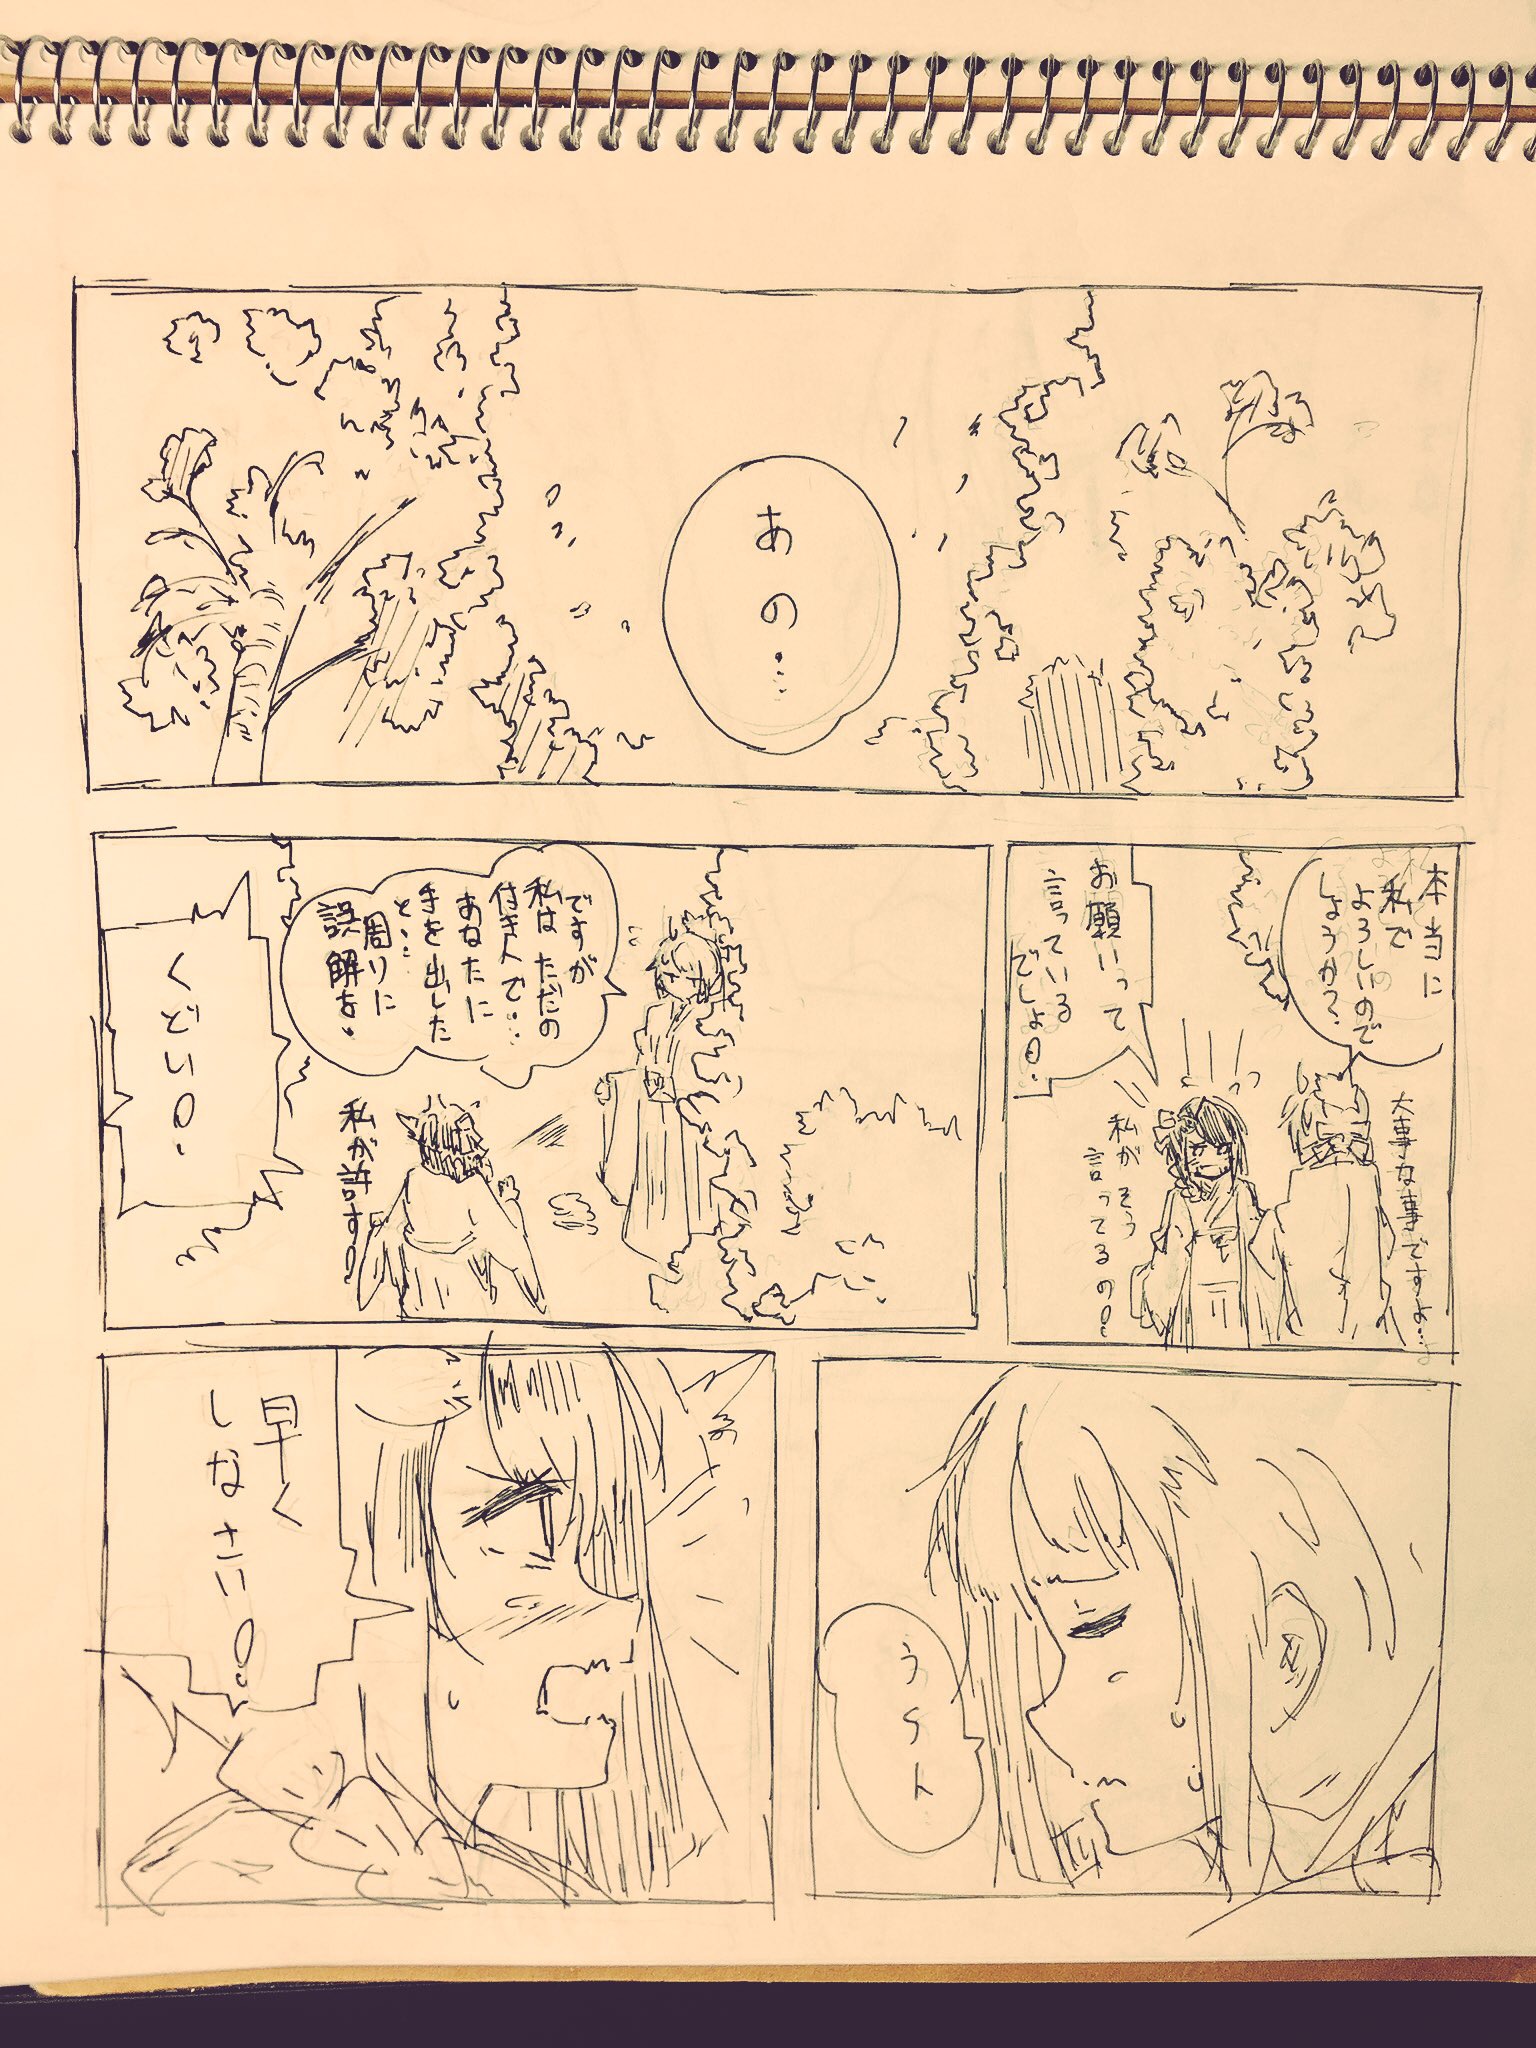 あの…
本当に
私で
よろしいので
しょうか?
大事な事ですよ…
お願いって
言っている
でしょ!!
私がそう
言ってるの!
ですが
私はただの
付き人で…
あなたに
手を出した
と…
周りに
誤解を・
私が許す!
くどい!
うっ
早く
しなさい!!